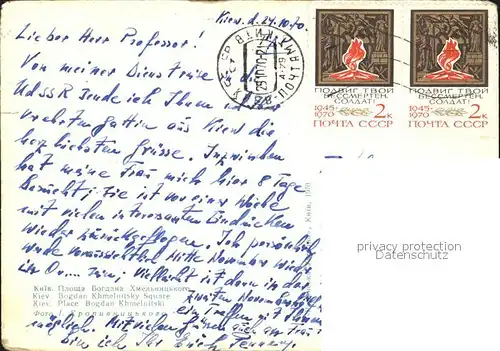 Kiew, d. 24.10.70.
Lieber Herr Professor!
Von meiner Dienstreise in die
UdSSR sende ich Ihnen und Ihrer
verehrten Gattin aus Kiew die
herzlichsten Grüsse. Inzwischen
hat meine Frau mich hier 8 Tage
besucht; sie ist vor einer Woche
mit vielen interessanten Eindrücken
wieder zurückgeflogen. Ich persönlich
werde voraussichtlich Mitte November wieder
in sein; vielleicht ist dann in der
zweiten Novemberhälfte
ein Treffen mit Ihnen
möglich. Mit vielen Grüssen auch an Frau
bin ich Ihr Erich
ПОДВИГ ТВОЙ
БЕССМЕРТЕН,
СОЛДАТ!
1945-
1970
2К
ПОЧТА СССР
ПОДВИГ ТВОЙ
БЕССМЕРТЕН,
СОЛДАТ!
1945-
1970
2К
ПОЧТА СССР
ПОЧТАМТ
privacy protection
for Members
Київ. Площа Богдана Хмельницького
Kiev. Bogdan Khmelnitsky Square
Kiev. Place Bogdan Khmelnitski
Фото І. Кропивницького